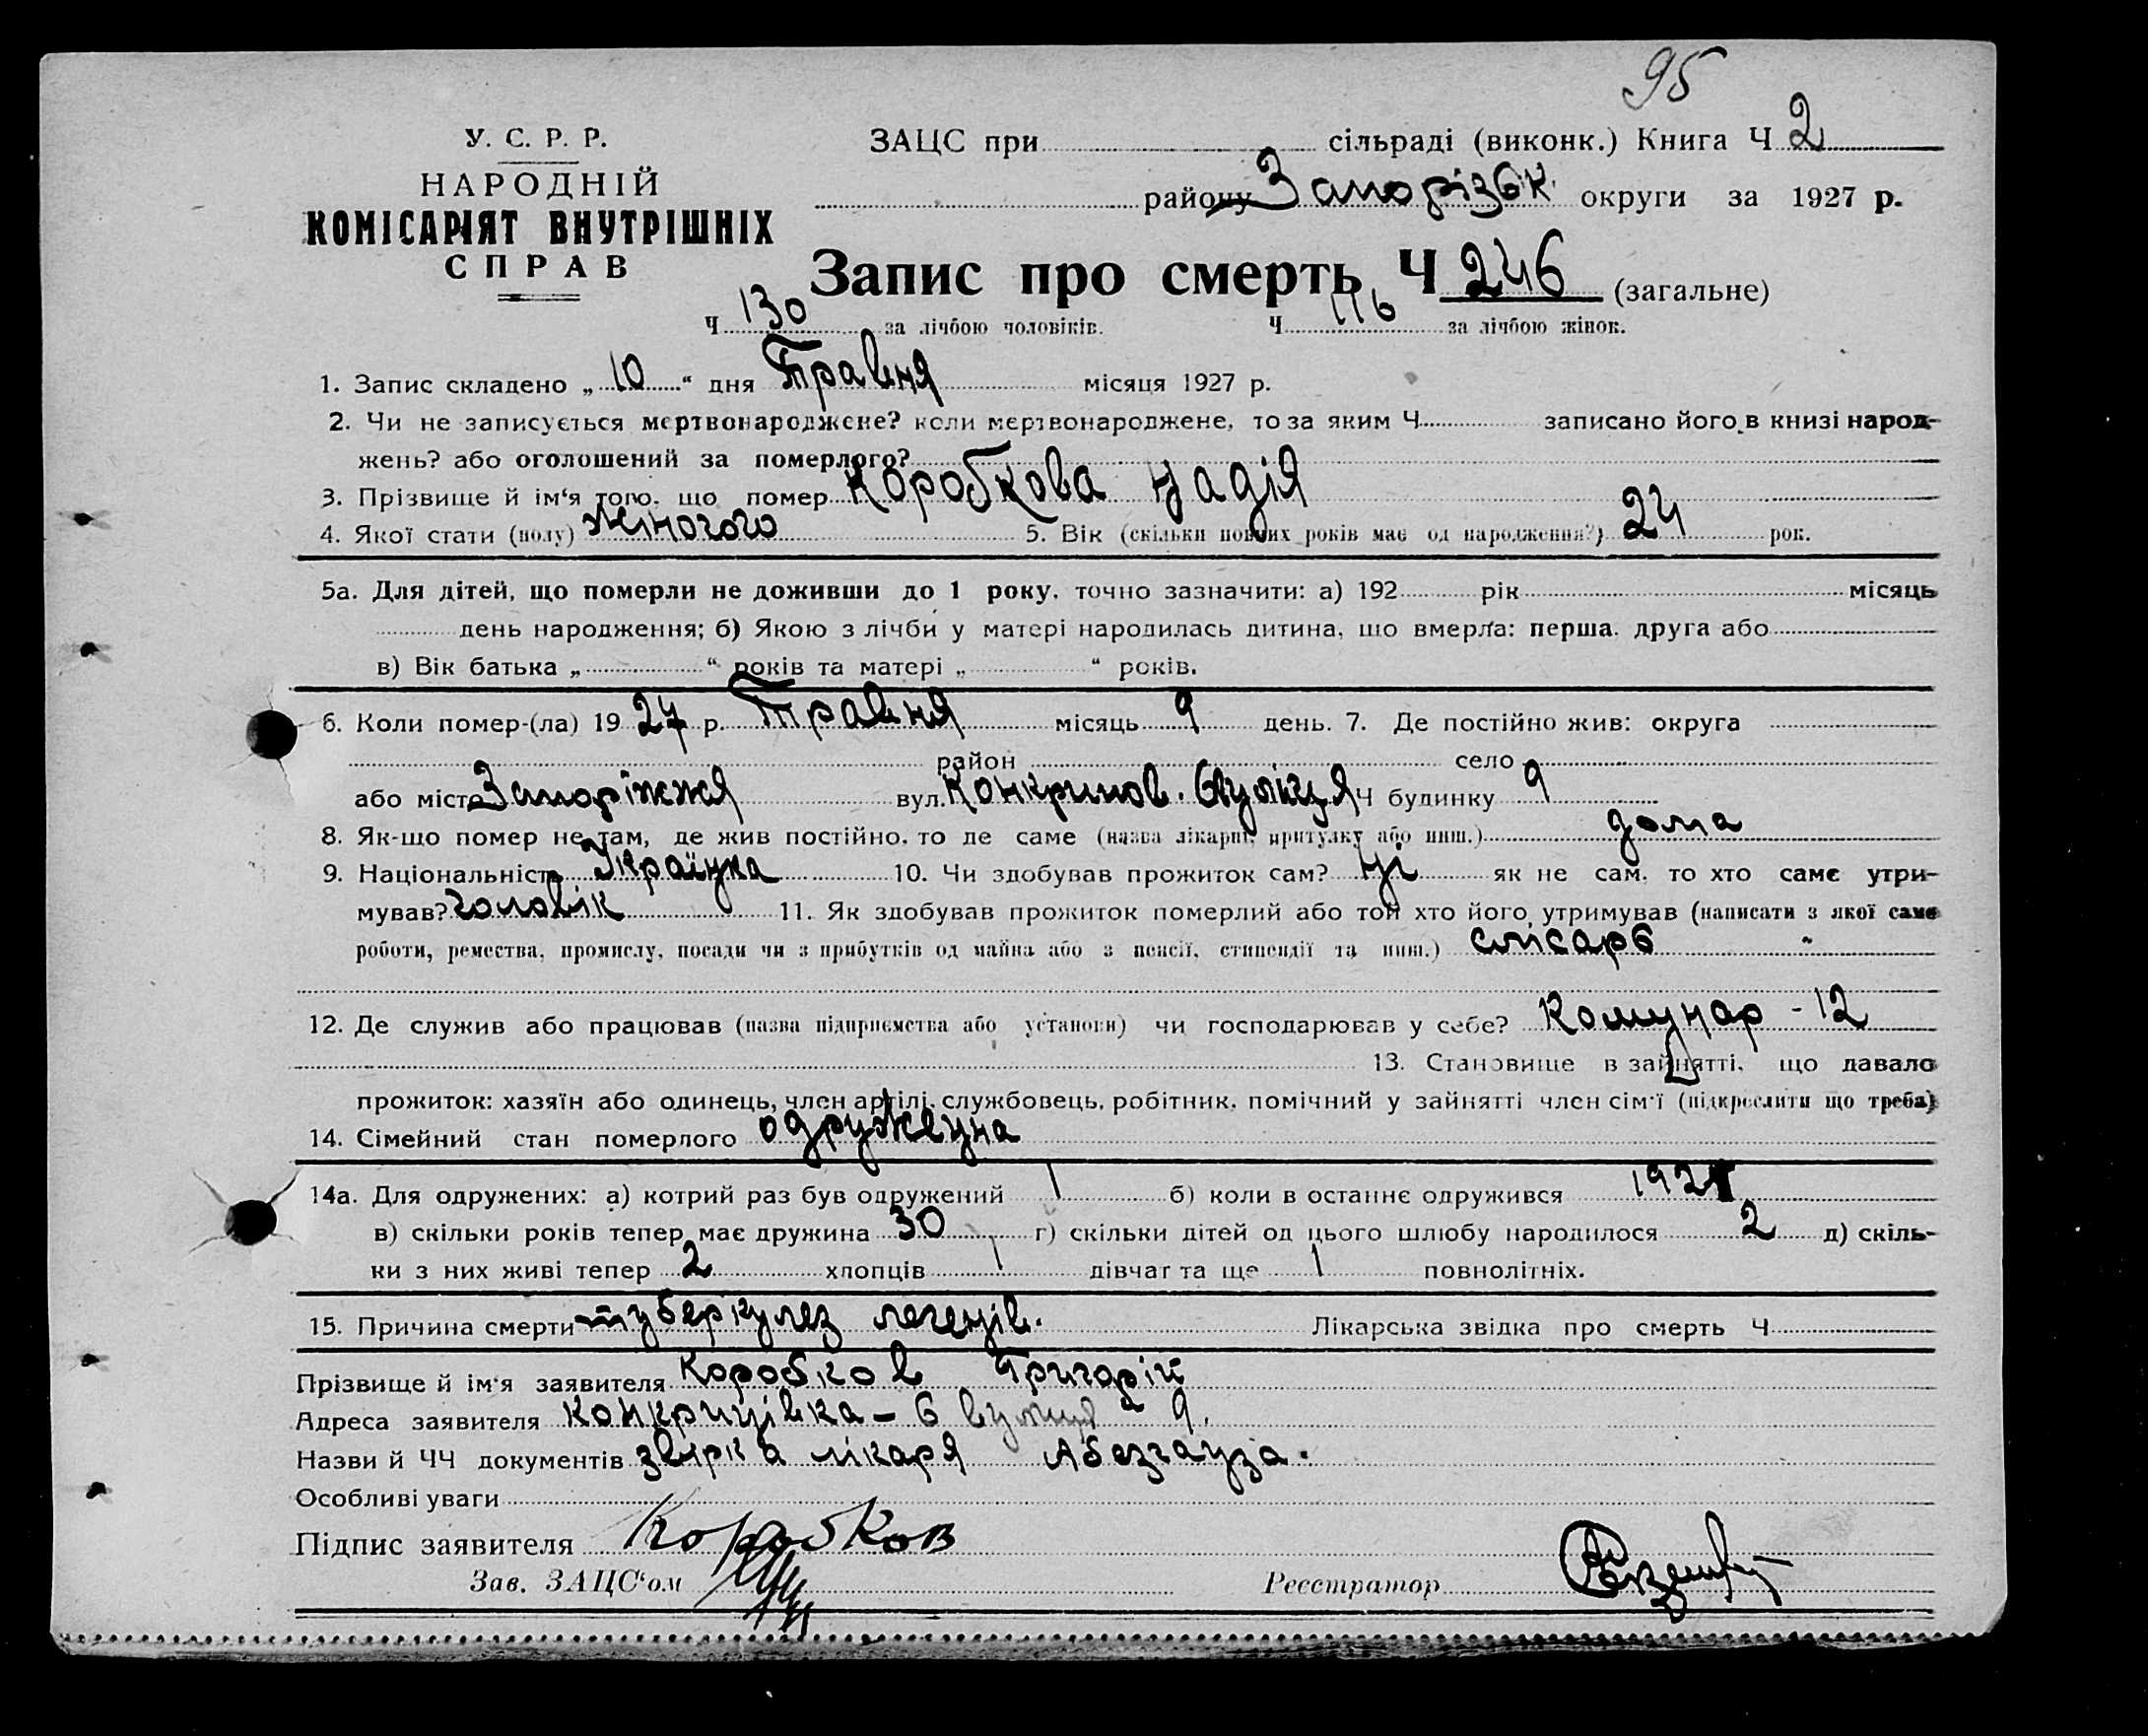 95
У. С. Р. Р.
НАРОДНІЙ
КОМІСАРІЯТ ВНУТРІШНІХ
СПРАВ
ЗАЦС при сільраді (виконк.) Книга Ч 2
району Запорізьк. округи за 1927 р.
Запис про смерть Ч 246 (загальне)
Ч 130 за лічбою чоловіків. Ч 116 за лічбою жінок.
1. Запис складено „ 10 “ дня Травня місяця 1927 р.
2. Чи не записується мертвонароджене? коли мертвонароджене, то за яким Ч записано його в книзі народ-
жень? або оголошений за померлого?
3. Прізвище й ім‘я того, що помер Коробкова Надія
4. Якої стати (полу) жіночого 5. Вік (скільки повних років має од народження?) 24 рок.
5а. Для дітей, що померли не доживши до 1 року, точно зазначити: а) 192 рік місяць
день народження; б) Якою з лічби у матері народилась дитина, що вмерла: перша, друга або
в) Вік батька „ “ років та матері „ “ років.
6. Коли помер-(ла) 19 27 р. Травня місяць 9 день. 7. Де постійно жив: округа
район село
або місто Запоріжжя вул. Конкринов. 6 вулиця Ч будинку 9
8. Як-що помер не там, де жив постійно, то де саме (назва лікарні, притулку або инш.) дома
9. Національність Українка 10. Чи здобував прожиток сам? ні як не сам, то хто саме утри-
мував? чоловік 11. Як здобував прожиток померлий або той хто його утримував (написати з якої саме
роботи, ремества, промислу, посади чи з прибутків од майна або з пенсії, стипендії та инш.) слісарь
12. Де служив або працював (назва підприємства або установи) чи господарював у себе? Комунар - 12
13. Становище в зайнятті, що давало
прожиток: хазяїн або одинець, член артілі, службовець, робітник, помічний у зайнятті член сім‘ї (підкреслити що треба)
14. Сімейний стан померлого одружена
14а. Для одружених: а) котрий раз був одружений 1 б) коли в останнє одружився
в) скільки років тепер має дружина 30 г) скільки дітей од цього шлюбу народилося 2 д) скіль-
ки з них живі тепер 2 хлопців дівчат та ще повнолітніх.
15. Причина смерти туберкулез легенів. Лікарська звідка про смерть Ч
Прізвище й ім‘я заявителя Коробков Григорій
Адреса заявителя Конкринівка – 6 вулиця 9.
Назви й ЧЧ документів лікаря Абезгауза.
Особливі уваги
Підпис заявителя Коробков
Зав. ЗАЦС‘ом Реєстратор